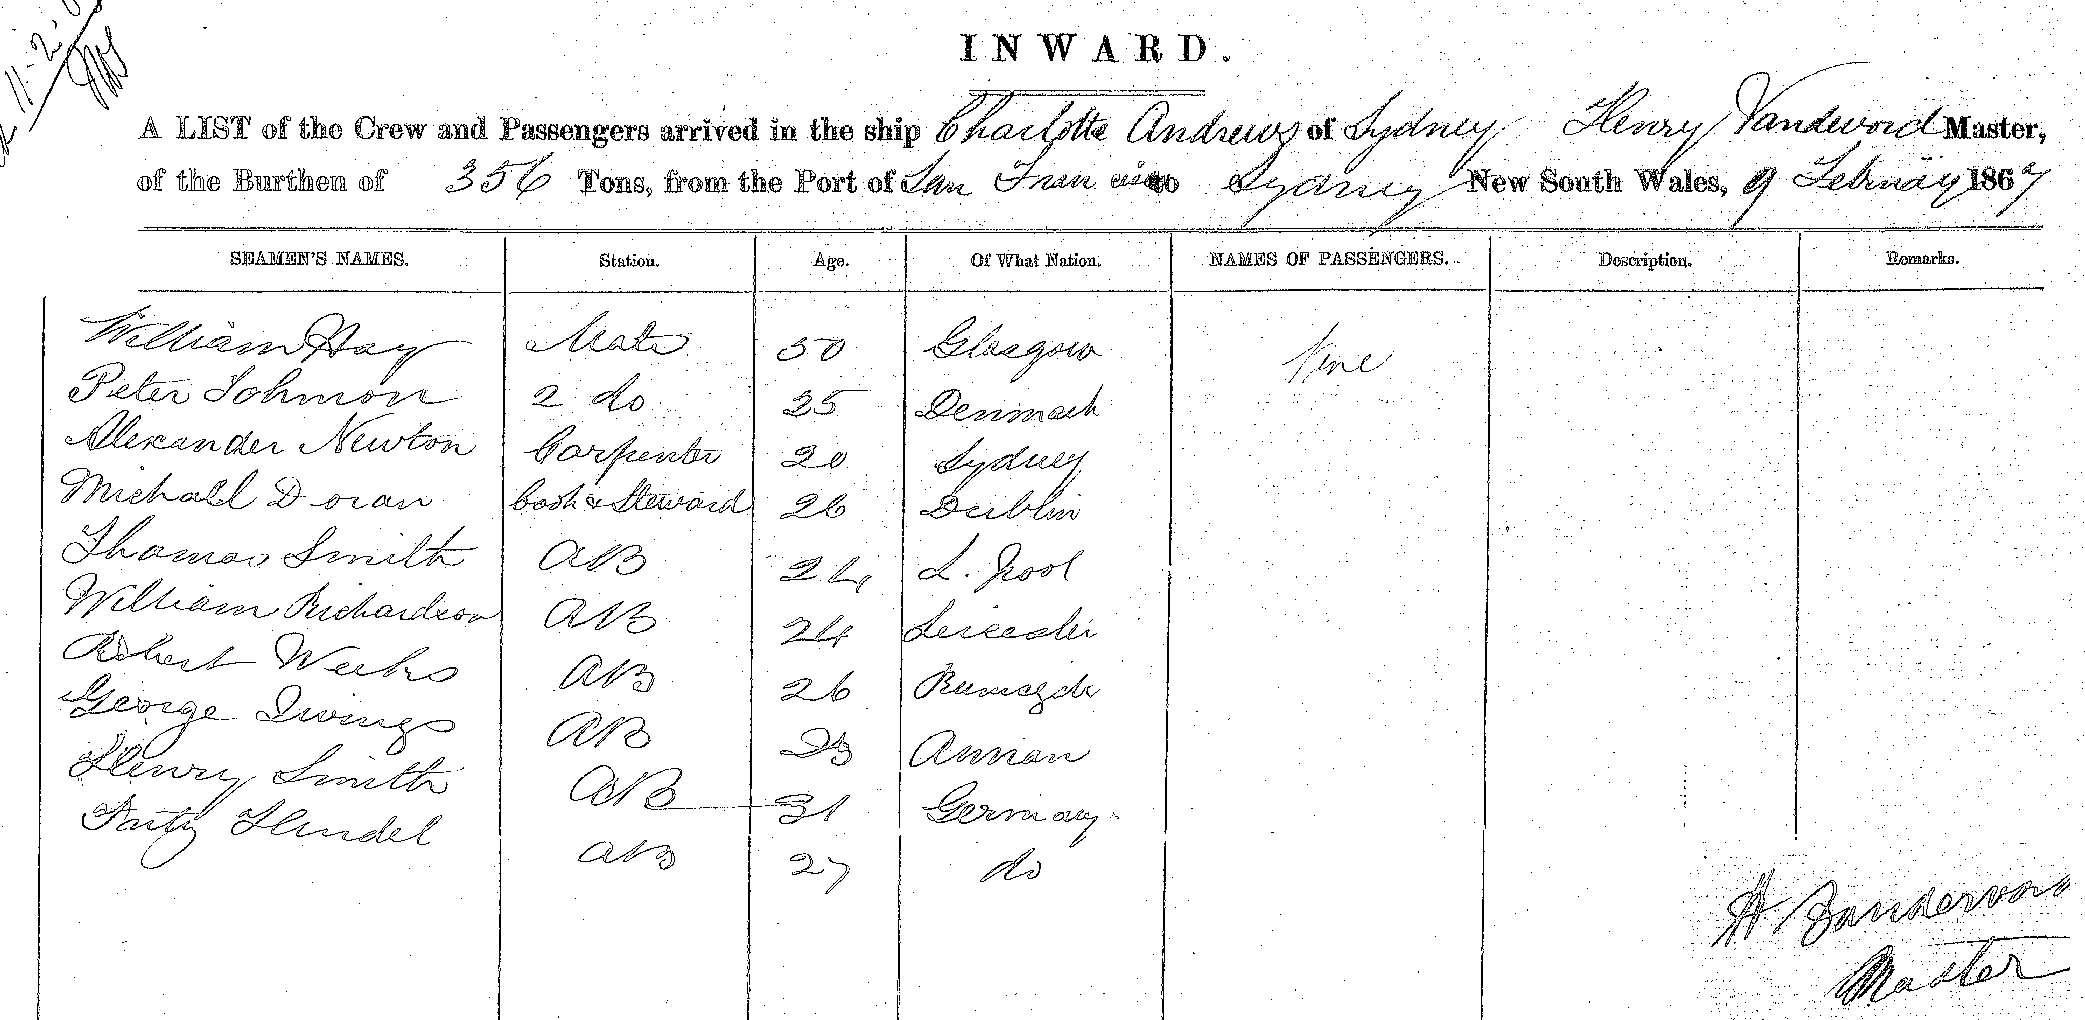 11-2
INWARD.
A LIST of the Crew and Passengers arrived in the ship Charlotte Andrews of Sydney Henry Vandervord Master,
of the Burthen of 356 Tons, from the Port of San Francisco to Sydney New South Wales, 9 February 1867
SEAMEN'S NAMES. Station. Age. Of What Nation. NAMES OF PASSENGERS. Description. Remarks.
William Hay Mate 50 Glasgow
Peter Johnson 2 do 25 Denmark
Alexander Newton Carpenter 20 Sydney
Michall Doran Cook & Steward 26 Dublin
Thomas Smith AB 24 L. pool
William Richardson AB 24 Leicester
Robert Weeks AB 26
George AB Annan
Henry Smith AB 31 Germany
AB 27 do
H Vandervord
Master